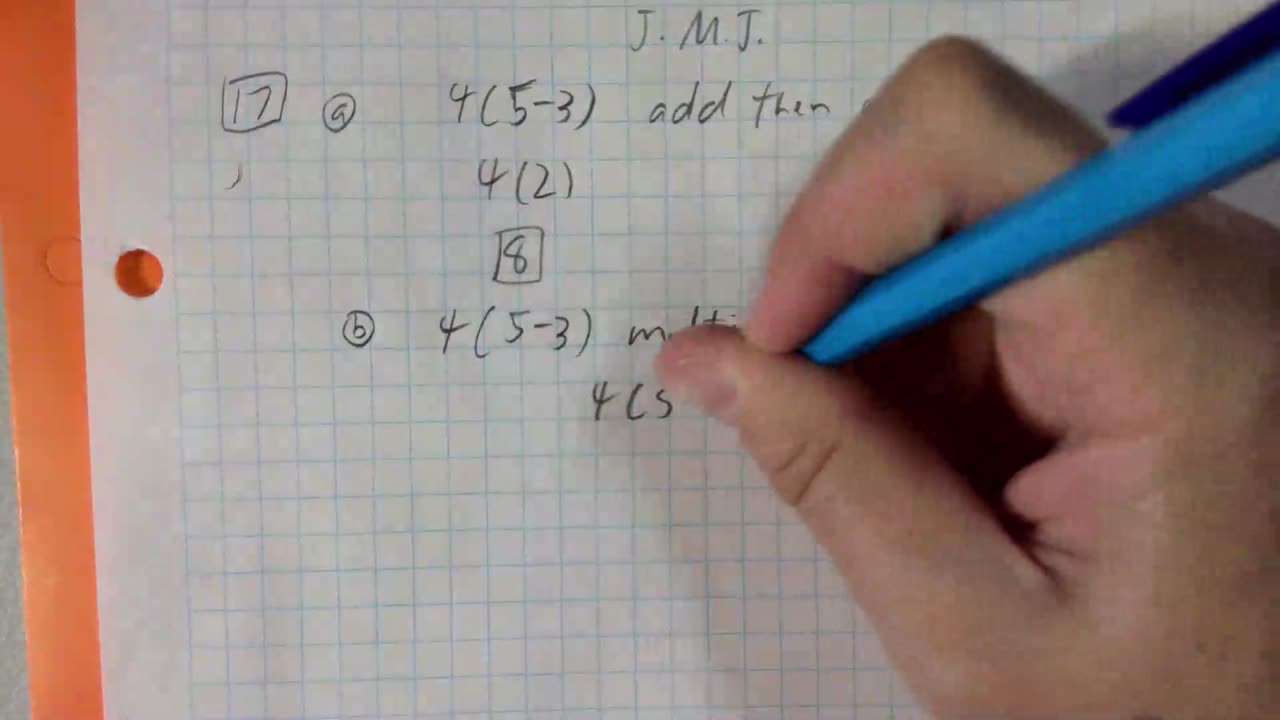 J.M.J.
17 a 4(5-3) add then
4(2)
8
b 4(5-3)
4(5